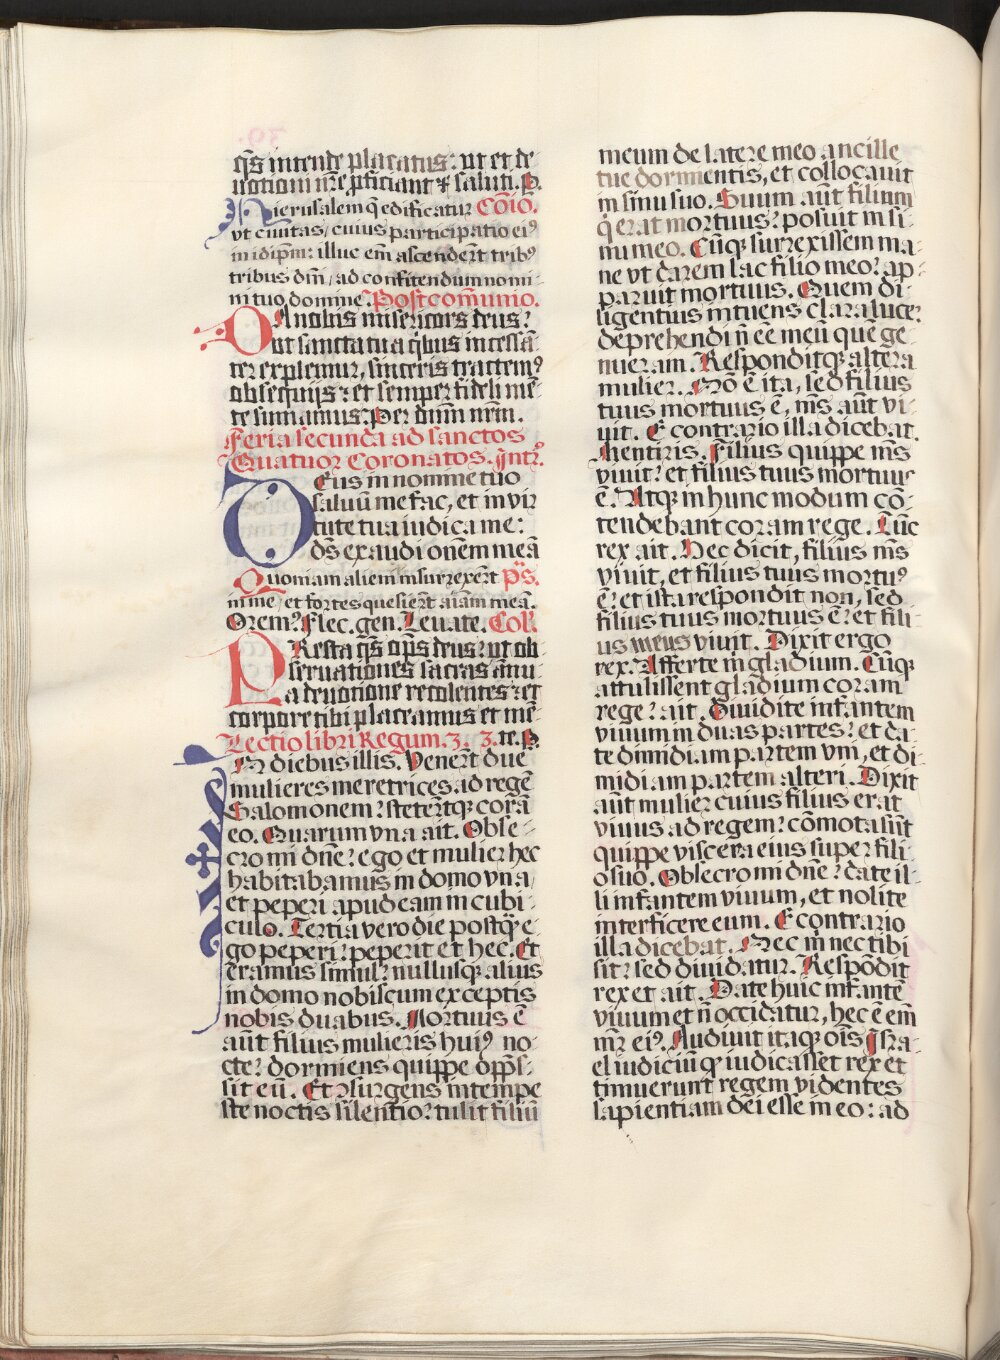 q̃s intende placatus: ut et de
uotioni nr̃e ꝓficiant ⁊ saluti. P.
Hierusalem q̃ edificatur Cõio.
vt ciuitas, cuius participatio eiꝰ
in idip̃m: illuc em̃ ascendert̃ tribꝰ
tribus dñi, ad confitendum nomi-
ni tuo domine. Postcom̃unio.
DA nobis misericors deus:
ut sancta tua q̃ibus incessã
ter explemur, sinceris tractemꝰ
obsequijs: et semper fideli mẽ
te sumamus. Per dñm nr̃m.
Feria secunda ad sanctos
Quatuor Coronatos. Intr̃.
DEus in nomine tuo
saluũ me fac, et in vir
tute tua iudica me:
ds̃ exaudi or̃onem meã
Quoniam alieni insurrexert̃ p̃s.
in me, et fortes quesiert̃ aĩam meã.
Oremꝰ. Flec. gen. Leuate. Coll.
PResta q̃s op̃s deus: ut ob
seruationes sacras ãnu
a deuotione recolentes: et
corpore tibi placeamus et mẽ-
Lectio libri Regum. 3. 3. te. P.
IN diebus illis. Venert̃ due
mulieres meretrices ad regẽ
Salomonem: stetert̃qꝫ corã
eo. Quarum vna ait. Obse-
cro mi dñe: ego et mulier hec
habitabamus in domo vna,
et peperi apud eam in cubi-
culo. Tertia vero die postq̃ e-
go peperi: peperit et hec. Et
eramus simul: nullusqꝫ alius
in domo nobiscum exceptis
nobis duabus. Mortuus ẽ
aũt filius mulieris huiꝰ no-
cte: dormiens quippe opp̃s-
sit eũ. Et ↄsurgens intempe
ste noctis silentio: tulit filiũ
meum de latere meo ancille
tue dormientis, et collocauit
in sinu suo. Suum aũt filium
q̇ erat mortuus: posuit in si-
nu meo. Cũqꝫ surrexissem ma-
ne vt darem lac filio meo: ap-
paruit mortuus. Quem di-
ligentius intuens clara luce:
deprehendi ñ eẽ meũ quẽ ge-
nueram. Responditqꝫ altera
mulier. Nõ ẽ ita, sed filius
tuus mortuus ẽ, m̃s aũt vi-
uit. E contrario illa dicebat.
Mentiris. Filius quippe m̃s
viuit: et filius tuus mortuus
ẽ. Atqꝫ in hunc modum cõ-
tendebant coram rege. Tũc
rex ait. Hec dicit, filius m̃s
viuit, et filius tuus mortuꝰ
ẽ: et ista respondit non, sed
filius tuus mortuus ẽ: et fili-
us meus viuit. Dixit ergo
rex. Afferte m̃ gladium. Cũqꝫ
attulissent gladium coram
rege: ait. Diuidite infantem
viuum in duas partes: et da-
te dimidiam partem vni, et di-
midiam partem alteri. Dixit
aũt mulier cuius filius erat
viuus ad regem: cõmota sũt
quippe viscera eius super fili-
o suo. Obsecro mi dñe: date il-
li infantem viuum, et nolite
interficere eum. E contrario
illa dicebat. Nec m̃ nec tibi
sit: sed diuidatur. Respõdit
rex et ait. Date huic infantẽ
viuum et ñ occidatur, hec ẽ em̃
mr̃ eiꝰ. Audiuit itaqꝫ oĩs Isra-
el iudiciũ q̇ iudicasset rex et
timuerunt regem videntes
sapientiam dei esse in eo: ad